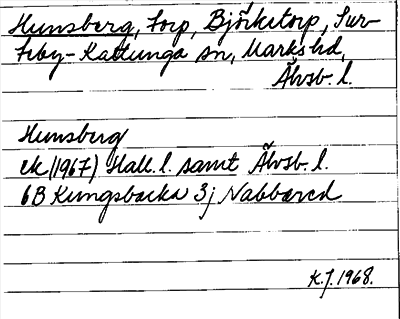 Hunsberg, torp, Björketorp, Sur-
teby-Kattunga sn, Marks hd,
Älvsb. l.
Hunsberg
ek (1967) Hall. l. samt Älvsb. l.
6B Kungsbacka 3j Nabbared
K.J. 1968.